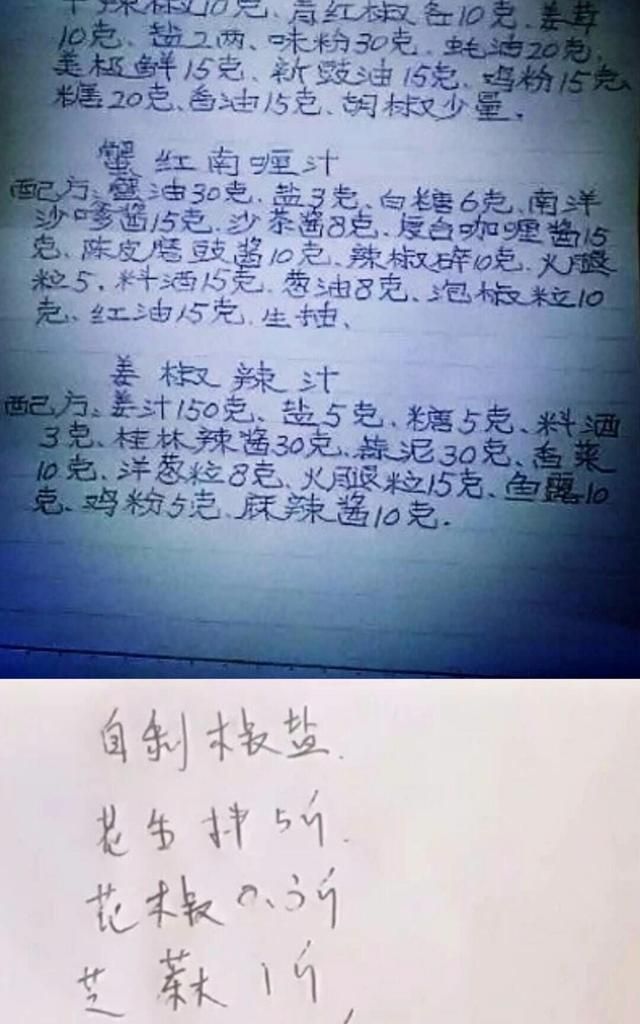 干辣椒10克、青红椒各10克、姜茸
10克、盐2两、味粉30克、蚝油20克、
美极鲜15克、新豉油15克、鸡粉15克、
糖20克、香油15克、胡椒少量.
蟹红南喱汁
配方:蟹油30克、盐3克、白糖6克、南洋
沙嗲酱15克、沙茶酱8克、咖喱酱15
克、陈皮磨豉酱10克、辣椒碎10克、火腿
粒5、料酒15克、葱油8克、泡椒粒10
克、红油15克、生抽、
姜椒辣汁
配方:姜汁150克、盐5克、糖5克、料酒
3克、桂林辣酱30克、蒜泥30克、香菜
10克、洋葱粒8克、火腿粒15克、鱼露10
克、鸡粉5克、麻辣酱10克.
自制椒盐.
花生 5斤.
花椒0.3斤
芝麻 1斤